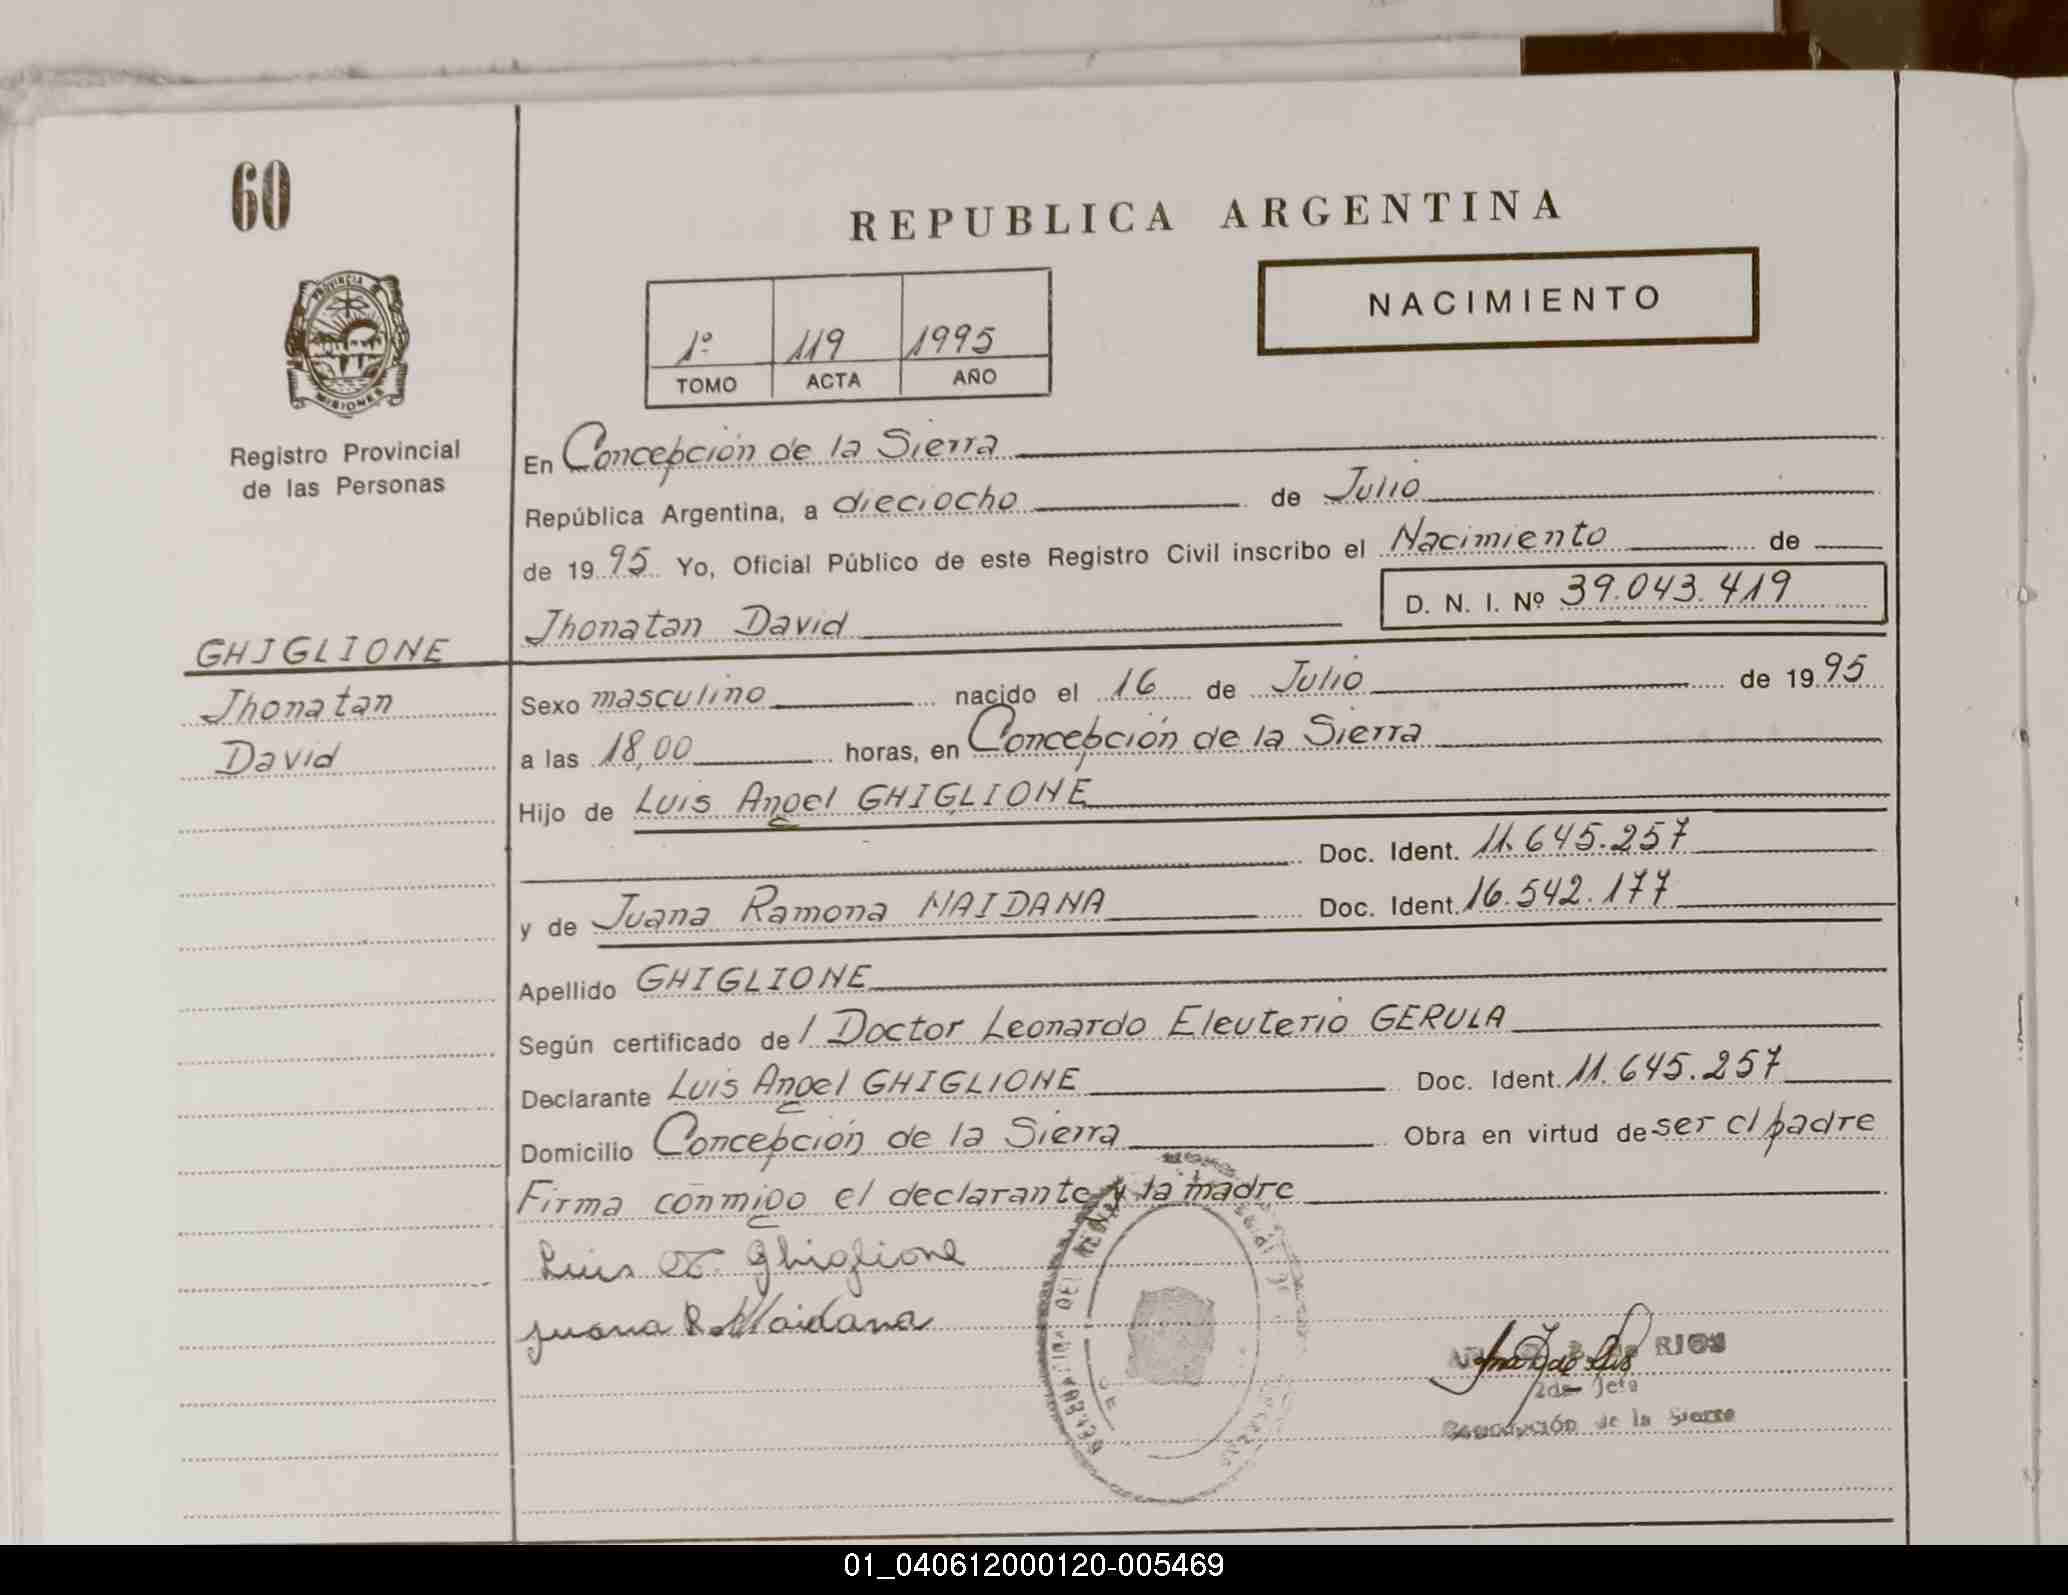 60
REPUBLICA ARGENTINA
NACIMIENTO
1º 119 1995
TOMO ACTA AÑO
PROVINCIA
MISIONES
Registro Provincial
de las Personas
En Concepción de la Sierra
República Argentina, a dieciocho de Julio
de 1995 Yo, Oficial Público de este Registro Civil inscribo el Nacimiento de
D. N. I. Nº 39.043.419
Jhonatan David
GHIGLIONE
Jhonatan
David
Sexo masculino nacido el 16 de Julio de 1995
a las 18,00 horas, en Concepción de la Sierra
Hijo de Luis Angel GHIGLIONE
Doc. Ident. 11.645.257
y de Juana Ramona MAIDANA Doc. Ident. 16.542.177
Apellido GHIGLIONE
Según certificado de l Doctor Leonardo Eleuterio GERULA
Declarante Luis Angel GHIGLIONE Doc. Ident. 11.645.257
Domicilio Concepción de la Sierra Obra en virtud de ser el padre
Firma conmigo el declarante y la madre
Luis A. Ghiglione
Juana R. Maidana
RIOS
2da Jefa
de la Sierra
01_040612000120-005469